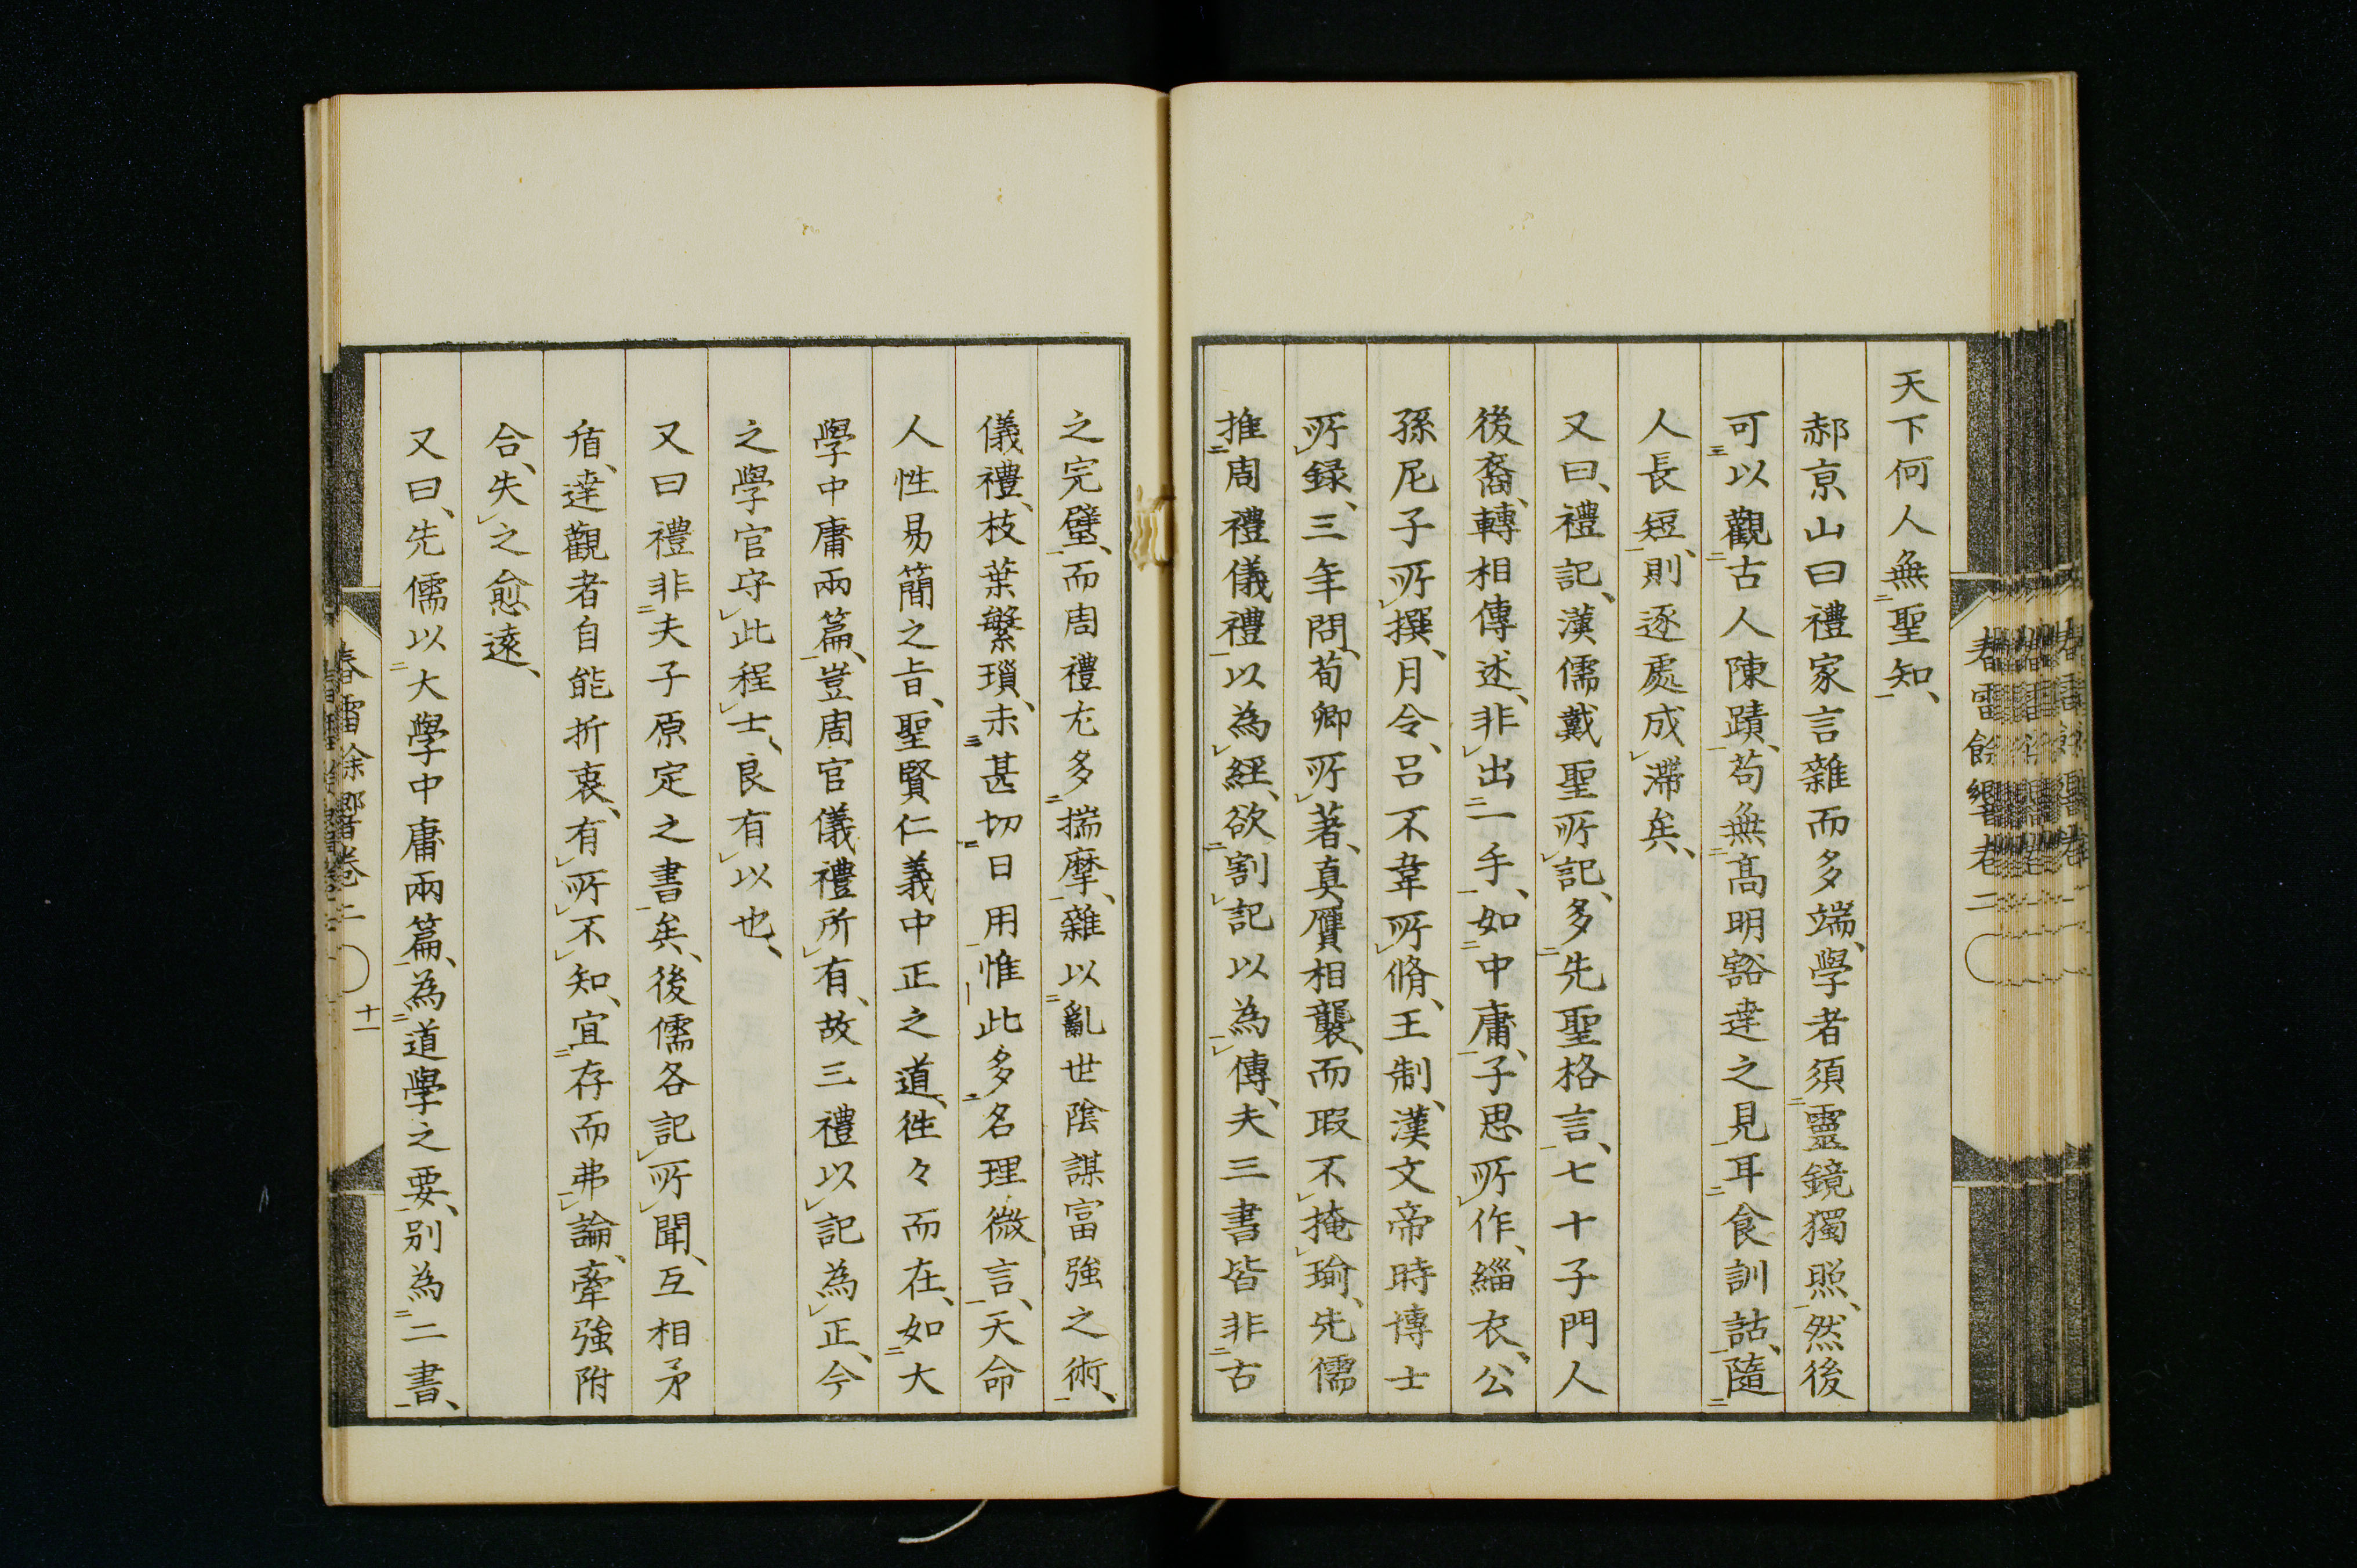 天下何人無二聖知一、
郝京山曰禮家言雜而多端、學者須二靈鏡獨照一、然後
可三以觀二古人陳蹟一、苟無二高明豁達之見一耳二食訓詁一、隨二
人長短一、則逐處成レ滯矣、
又曰、禮記、漢儒戴聖所レ記、多二先聖格言一、七十子門人
後裔、轉相傳述、非レ出二一手一、如二中庸一、子思所レ作、緇衣、公
孫尼子所レ撰、月令、呂不韋所レ脩、王制、漢文帝時博士
所レ錄、三年問、荀卿所レ著、真贋相襲、而瑕不レ掩レ瑜、先儒
推二周禮儀禮一以為レ經、欲二割レ記以為一レ傳、夫三書皆非二古
之完璧一、而周禮尤多二揣摩一、雜以二亂世陰謀富強之術一、
儀禮、枝葉繁瑣、未三甚切二日用一惟此多二名理微言一、天命
人性易簡之旨、聖賢仁義中正之道、徃々而在、如二大
學中庸兩篇一、豈周官儀禮所レ有、故三禮以レ記為レ正、今
之學官守レ此程レ士、良有レ以也、
又曰禮非二夫子原定之書一矣、後儒各記レ所レ聞、互相矛
盾、達觀者自能折衷、有レ所レ不レ知、宜二存而弗一レ論、牽強附
合、失レ之愈遠、
又曰、先儒以二大學中庸兩篇一、為二道學之要一、別為二二書一、
春雷餘響卷二
十一